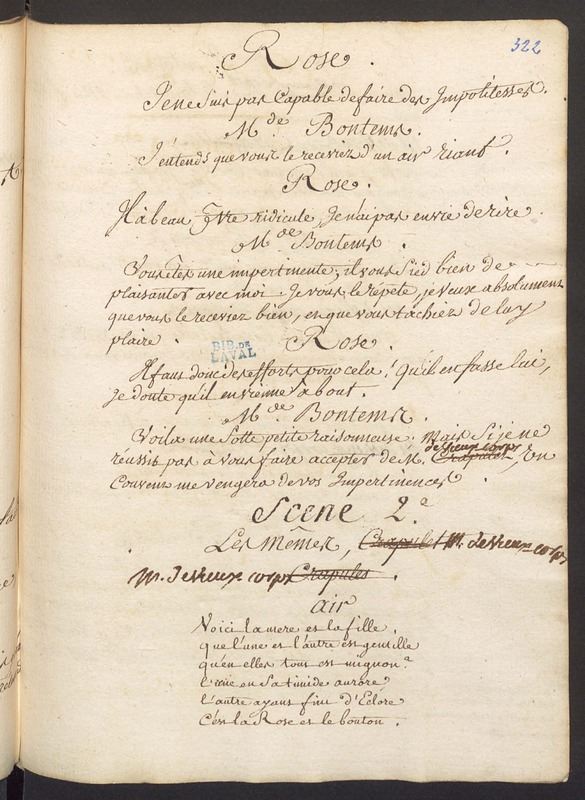 322
Rose.
Je ne suis pas Capable de faire des Impolitesses.
M.de Bontems.
J'entends que vous le receviez d'un air riant.
Rose.
Il a beau être ridicule, Je n'ai pas envie de rire.
M.de Bontems.
Vous êtes une impertinente; il vous sied bien de
plaisanter avec moi. Je vous le répéte, je veux absolument
que vous le receviez bien, et que vous tachiez de luy
plaire.
Rose.
BIB. DE
LAVAL
Il faut donc des efforts pour cela! Qu'il en fasse lui,
Je doute qu'il en vienne à bout.
M.de Bontems.
Voila une Sotte petite raisonneuse; Mais Si je ne
de vieux corps
réussis pas à vous faire accepter de M. Crapules, Un
Couvent me vengera de vos Impertinences.
Scene 2.e
Les Mêmes, Crapules M. de vieux corps
M. de vieux corps Crapules.
air
Voici la mere et la fille.
que l'une et l'autre est gentille
qu'en elles tout est mignon.
l'une en Sa timide aurore
l'autre ayant fini d'Eclore
C'est la Rose et le bouton.